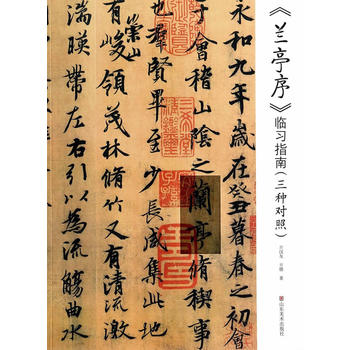 《兰亭序》临习指南(三种对照)
著
山东美术出版社
永和九年歲在癸丑暮春之初會
于會稽山陰之蘭亭脩禊事
也群賢畢至少長咸集此地
有崇山峻領茂林脩竹又有清流激
湍暎帶左右引以為流觴曲水